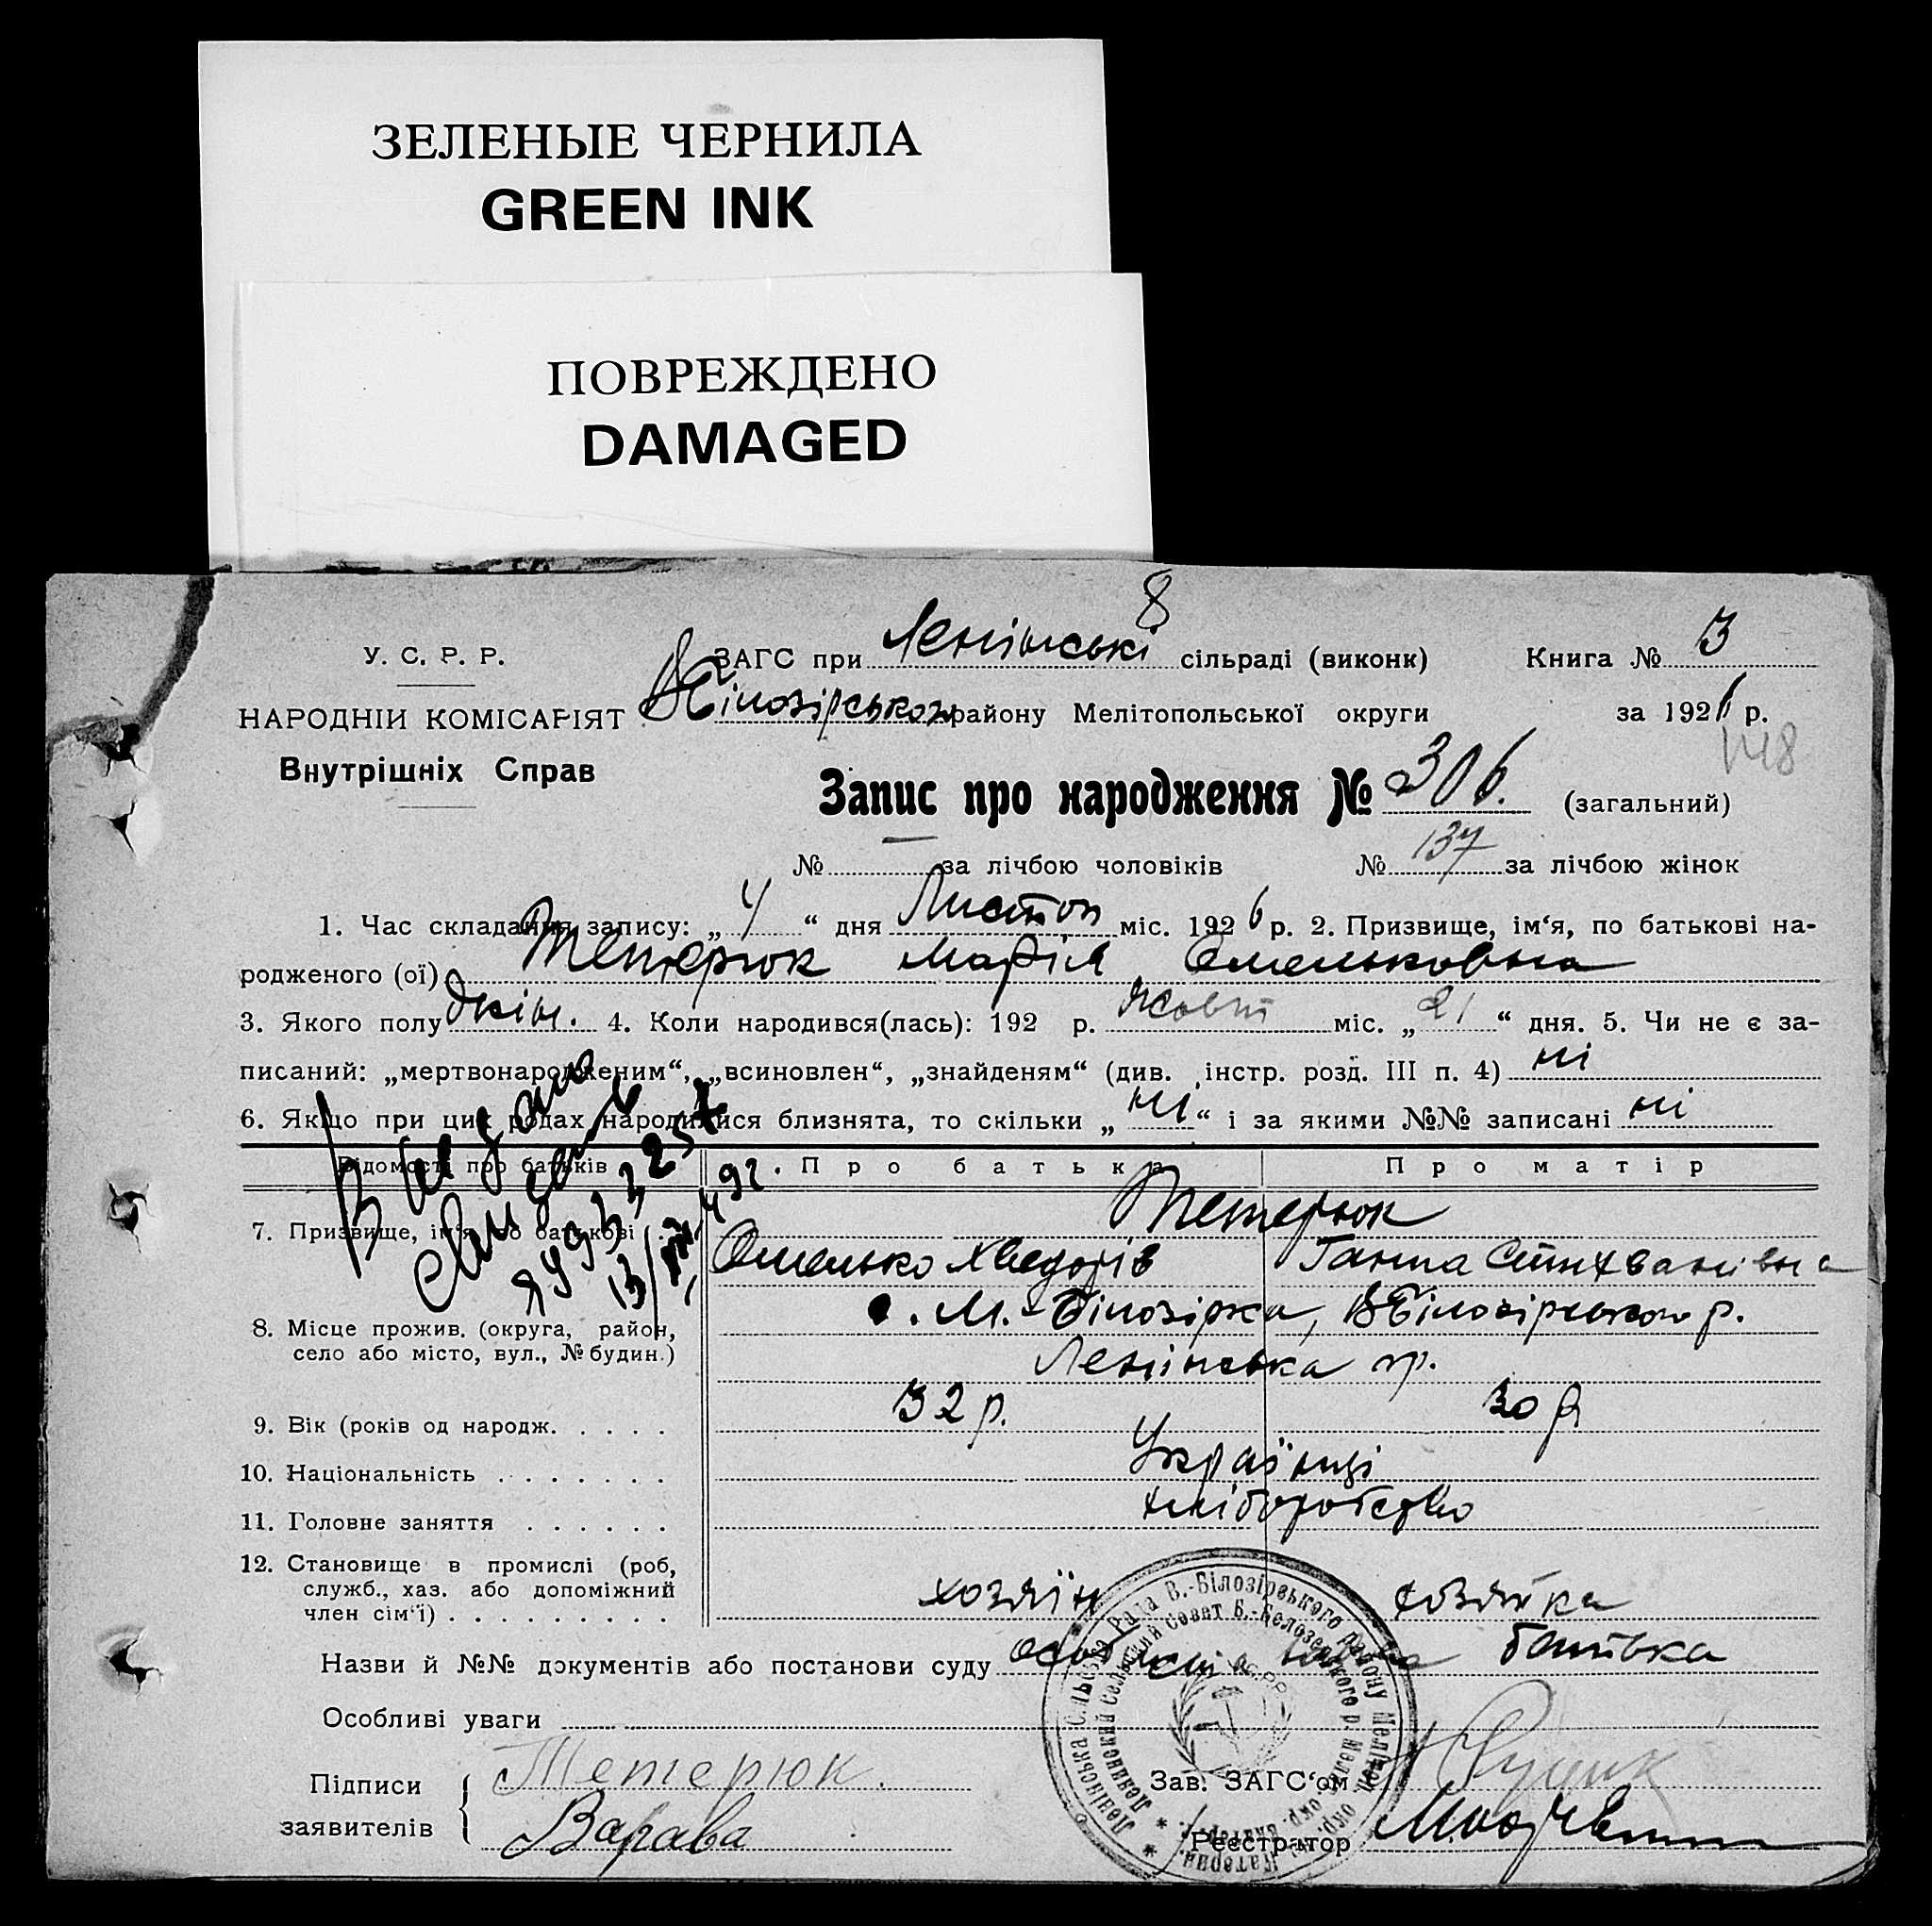 ЗЕЛЕНЫЕ ЧЕРНИЛА
GREEN INK
ПОВРЕЖДЕНО
DAMAGED
8
У. С. Р. Р.
НАРОДНІЙ КОМІСАРІЯТ
Внутрішніх Справ
ЗАГС при Ленінські сільраді (виконк) Книга № 3
ВБілозірського району Мелітопольської округи за 1926 р.
148
Запис про народження № 306. (загальний)
№ — за лічбою чоловіків № 137 за лічбою жінок
1. Час складання запису: „4“ дня Листоп міс. 1926 р. 2. Призвище, ім‘я, по батькові на-
родженого (ої) Тетерюк Марія Омельковна
3. Якого полу жін. 4. Коли народився(лась): 192 р. Жовт міс. „21“ дня. 5. Чи не є за-
писаний: „мертвонародженим“, „всиновлен“, „знайденям“ (див. інстр. розд. III п. 4) ні
6. Якщо при цих родах народилися близнята, то скільки „ні“ і за якими №№ записані ні
Відомості про батьків Про батька Про матір
7. Призвище, ім‘я по батькові Тетерюк
Омелько Хведорів Ганна Стихванівна
8. Місце прожив. (округа, район,
село або місто, вул., № будин.)
с. М.-Білозірка, ВБілозірського р.
Ленінська
9. Вік (років од народж. 32 р. 30 р.
10. Національність Українці
11. Головне заняття хліборобство
12. Становище в промислі (роб,
служб., хаз. або допоміжний
член сім‘ї) хозяїн хозяйка
Назви й №№ документів або постанови суду батька
Особливі уваги
Підписи
заявителів
Тетерюк.
Варава
Зав. ЗАГС‘ом
Реєстратор
Ленінська Сільська Рада В.-Білозірського району Мелітоп. окр. Катерин.
Ленинский Сельский Совет Б.-Белозерского р. Мелит. окр.